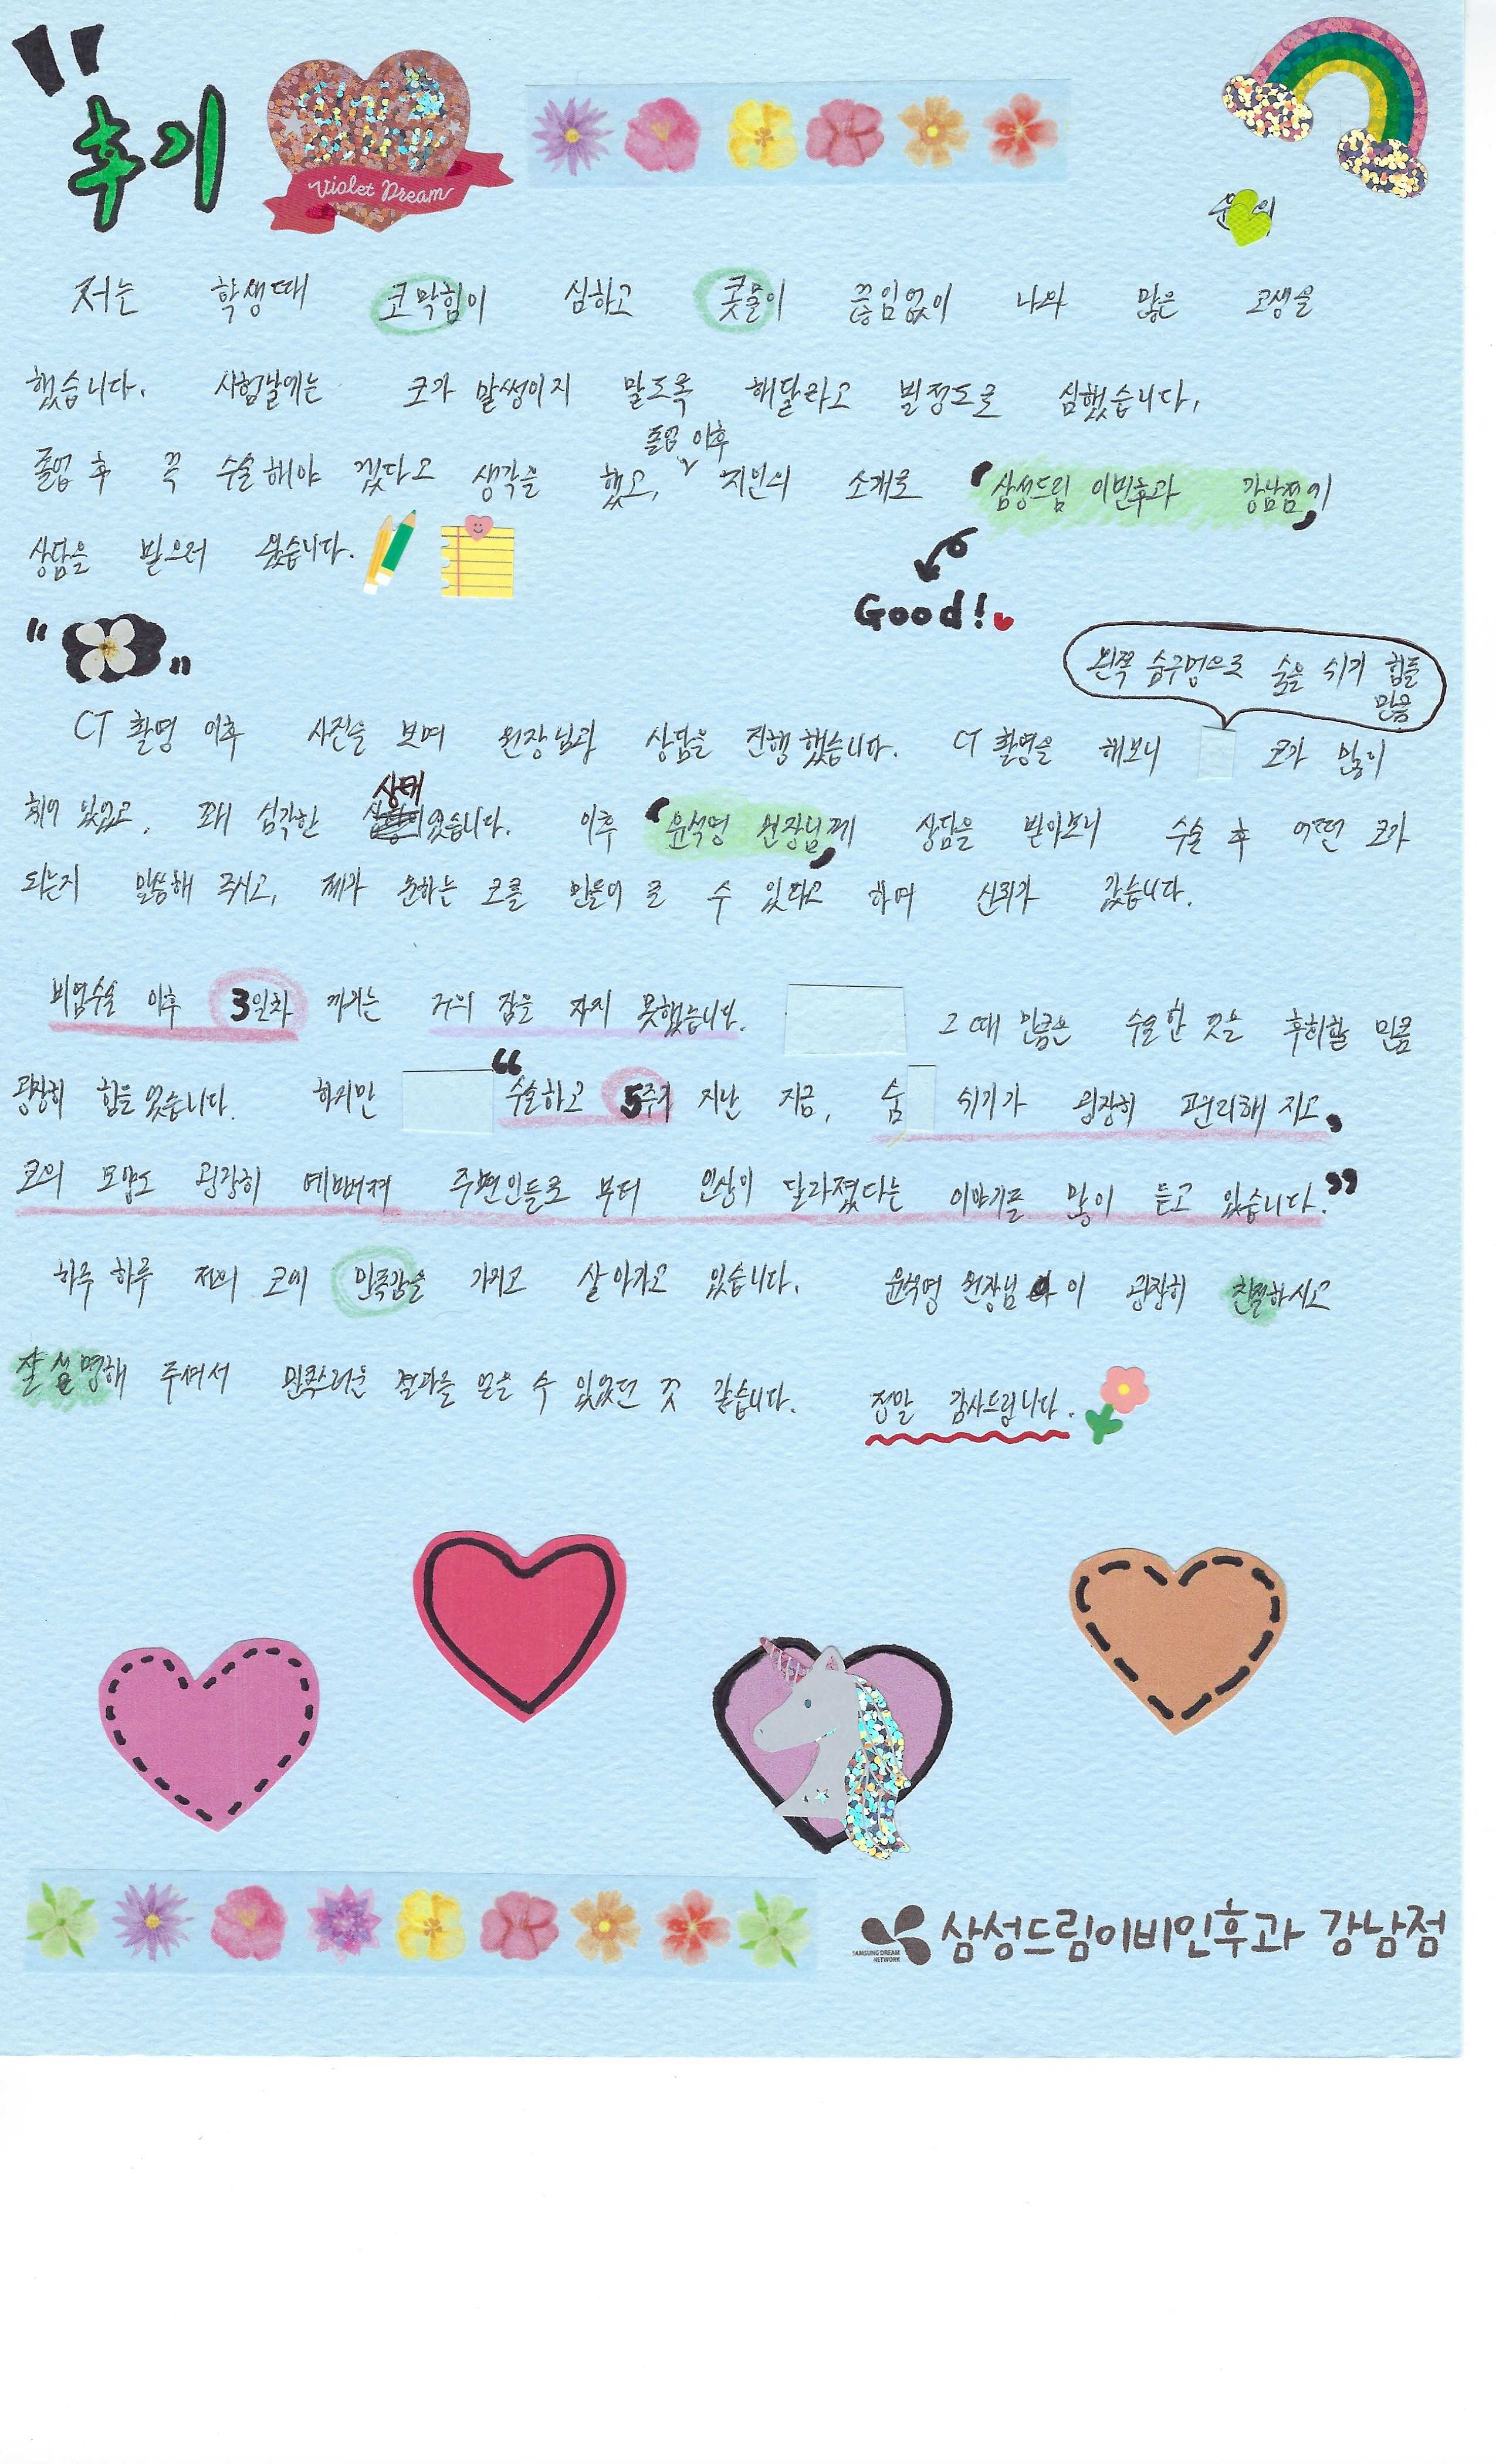 " 후기
Violet Dream
윤 의
저는 학생때 코막힘이 심하고 콧물이 끊임없이 나와 많은 고생을
했습니다. 시험날에는 코가 말썽이지 말도록 해달라고 빌정도로 심했습니다.
졸업 이후
졸업 후 꼭 수술해야 겠다고 생각을 했고, 지인의 소개로 '삼성드림 이빈후과 강남점'에
상담을 받으러 왔습니다.
Good!
" "
왼쪽 숨구멍으로 숨을 쉬기 힘들
만큼
CT 촬영 이후 사진을 보며 원장님과 상담을 진행했습니다. CT 촬영을 해보니 코가 많이
상태
휘어 있었고, 꽤 심각한 였습니다. 이후 '윤석명 원장님'께 상담을 받아보니 수술 후 어떤 코가
되는지 말씀해 주시고, 제가 원하는 코를 만들어 줄 수 있다고 하여 신뢰가 갔습니다.
비염수술 이후 3일차 까지는 거의 잠을 자지 못했습니다. 그 때 만큼은 수술한 것을 후회할 만큼
굉장히 힘들었습니다. 하지만 "수술하고 5주가 지난 지금, 숨 쉬기가 굉장히 편리해 지고,
코의 모양도 굉장히 예뻐져 주변인들로 부터 인상이 달라졌다는 이야기를 많이 듣고 있습니다."
하루 하루 저의 코에 만족감을 가지고 살아가고 있습니다. 윤석명 원장님 이 굉장히 친절하시고
잘 설명해 주셔서 만족스러운 결과를 얻을 수 있었던 것 같습니다. 정말 감사드립니다.
SAMSUNG DREAM
NETWORK
삼성드림이비인후과 강남점